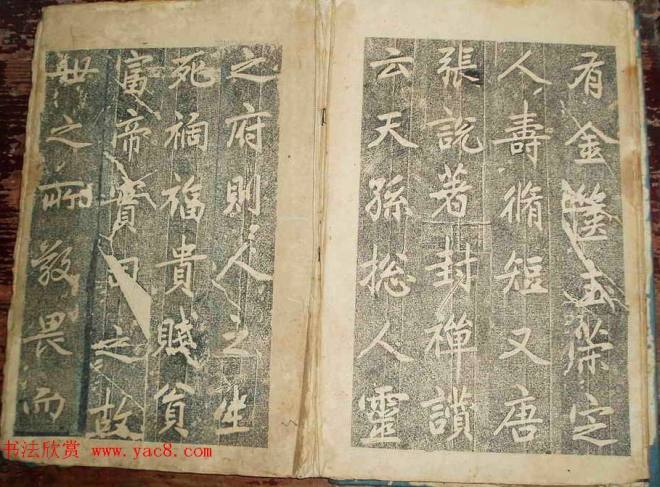 有金篋玉策定
人壽脩短又唐
張說著封禪讚
云天孫揔人靈
之府則人之生
死禍福貴賤貧
富帝實司之故
世之所敬畏而
书法欣赏 www.yac8.com